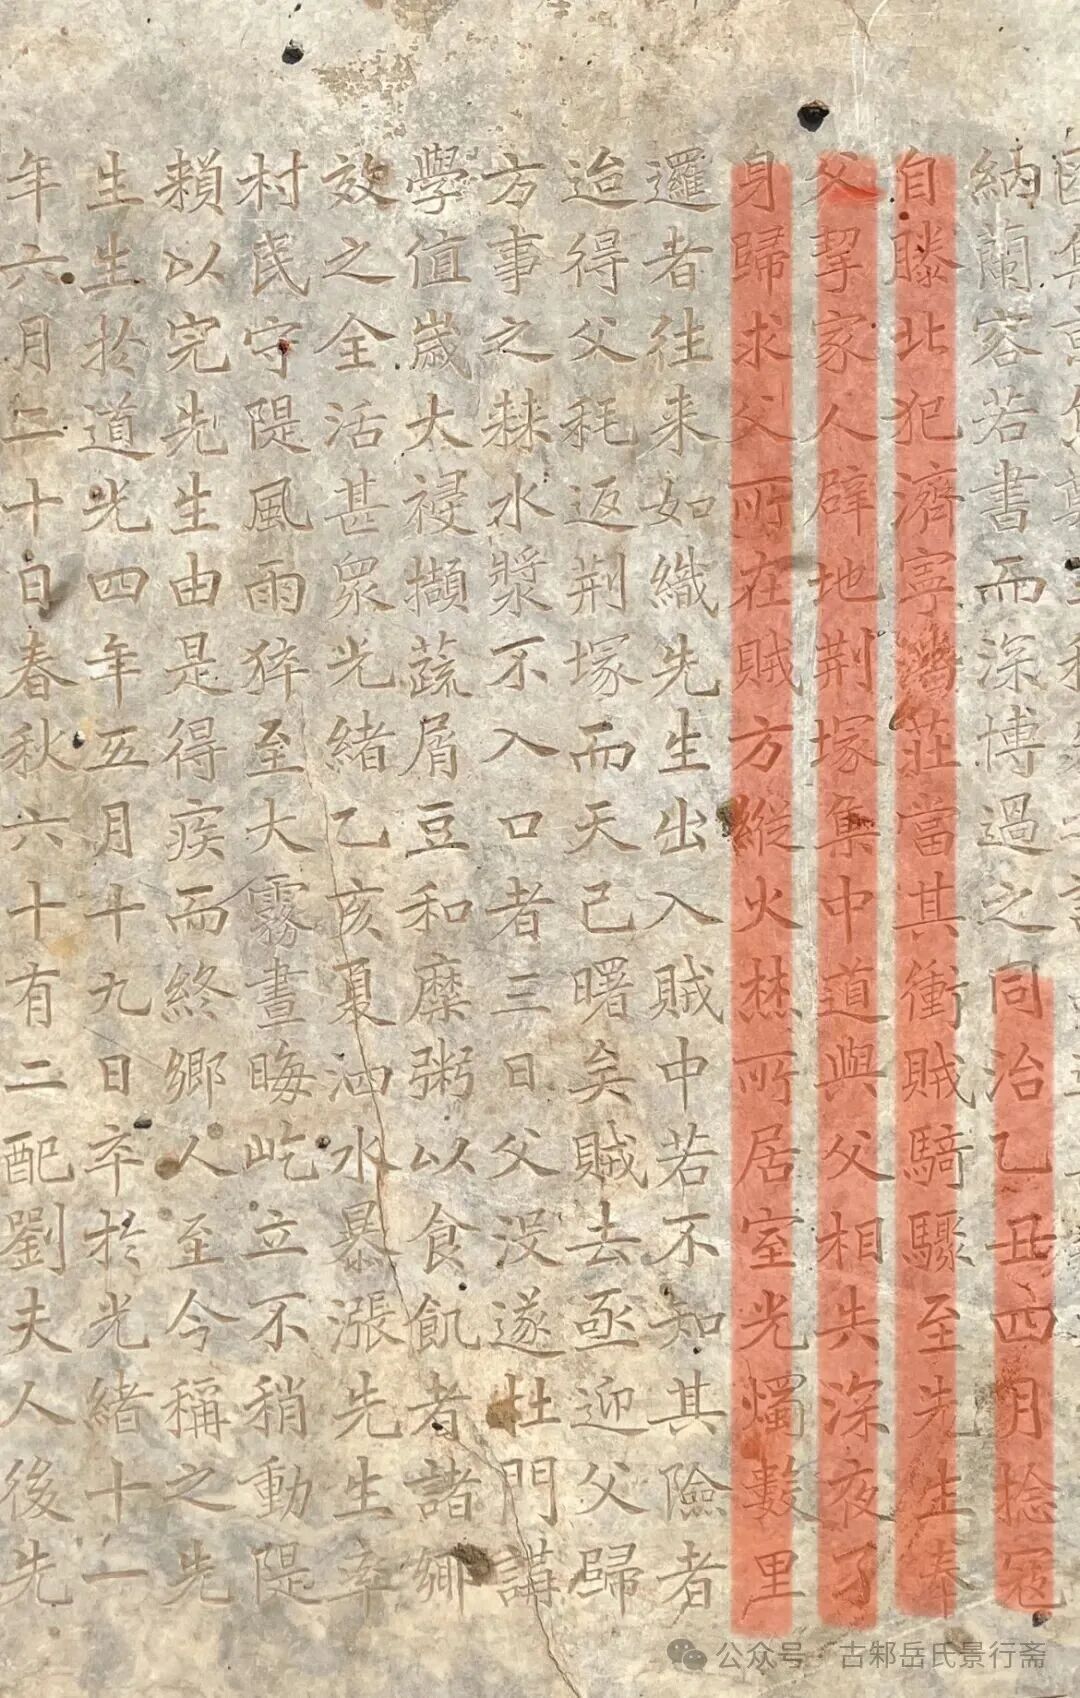 納蘭容若書而深博過之同治乙丑四月捻寇
自滕北犯濟寧潘莊當其衝賊騎驟至先生奉
父挈家人辟地荆塚集中道與父相失深夜孑
身歸求父所在賊方縱火焚所居室光燭數里
邏者往来如織先生出入賊中若不知其險者
迨得父秏返荆塚而天已曙矣賊去亟迎父歸
方事之棘水漿不入口者三日父没遂杜門講
學值嵗大祲擷蔬屑豆和糜粥以食飢者諸鄉
效之全活甚眾光緒乙亥夏泗水暴漲先生率
村民守隄風雨猝至大霧晝晦屹立不稍動隄
賴以完先生由是得疾而終鄉人至今稱之先
生生於道光四年五月十九日卒於光緒十一
年六月二十日春秋六十有二配劉夫人後先
公众号 古邾岳氏景行斋